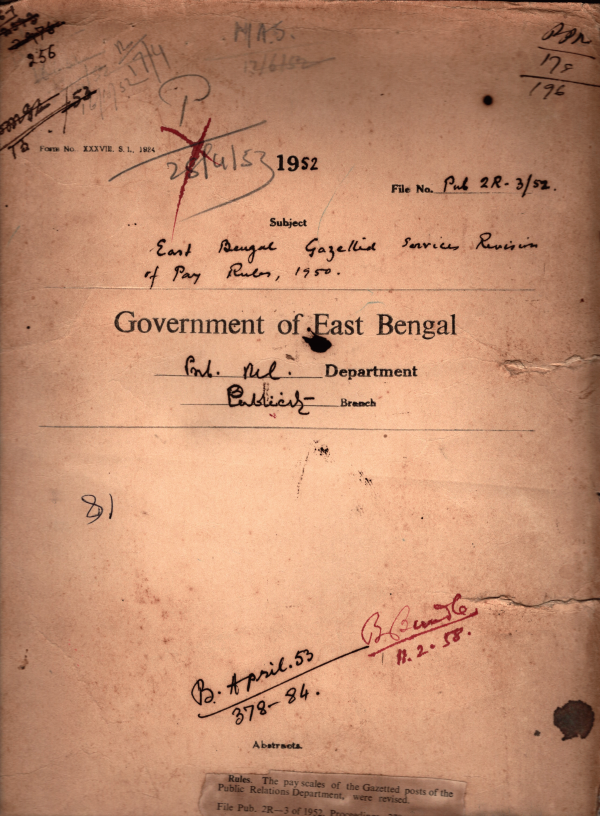 256
MAS.
13/6/52
PPR
178
196
P
Form No. XXXVIII. S. I., 1924
28/4/53
1952
File No. Pub 2R-3/52.
Subject
East Bengal Gazetted Services Revision
of Pay Rules, 1950.
Government of East Bengal
Pub. Rel. Department
Publicity Branch
81
B. Bundle
11.2.58.
B. April. 53
378-84.
Abstracts.
Rules. The pay scales of the Gazetted posts of the
Public Relations Department, were revised.
File Pub. 2R—3 of 1952, Proceedings